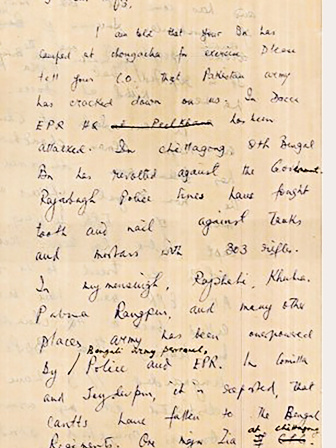 I am told that your Bn has
camped at chougacha for exercise Please
tell your C.O. that Pakistan army
has cracked down on us. In Dacca
EPR HQ at Peelkhana has been
attacked. In chittagong 8th Bengal
Bn has revolted against the Government.
Rajarbagh Police lines have fought
tooth and nail against Tanks
and mortars with 303 rifles.
In mymensingh, Rajshahi, Khulna,
Pabna Rangpur, and many other
places army has been overpowered
By / Bengali army personnel, Police and EPR. In Comilla
and Joydevpur, it is reported, that
cantts have fallen to the Bengal
Regiments. One major Zia at chittagong